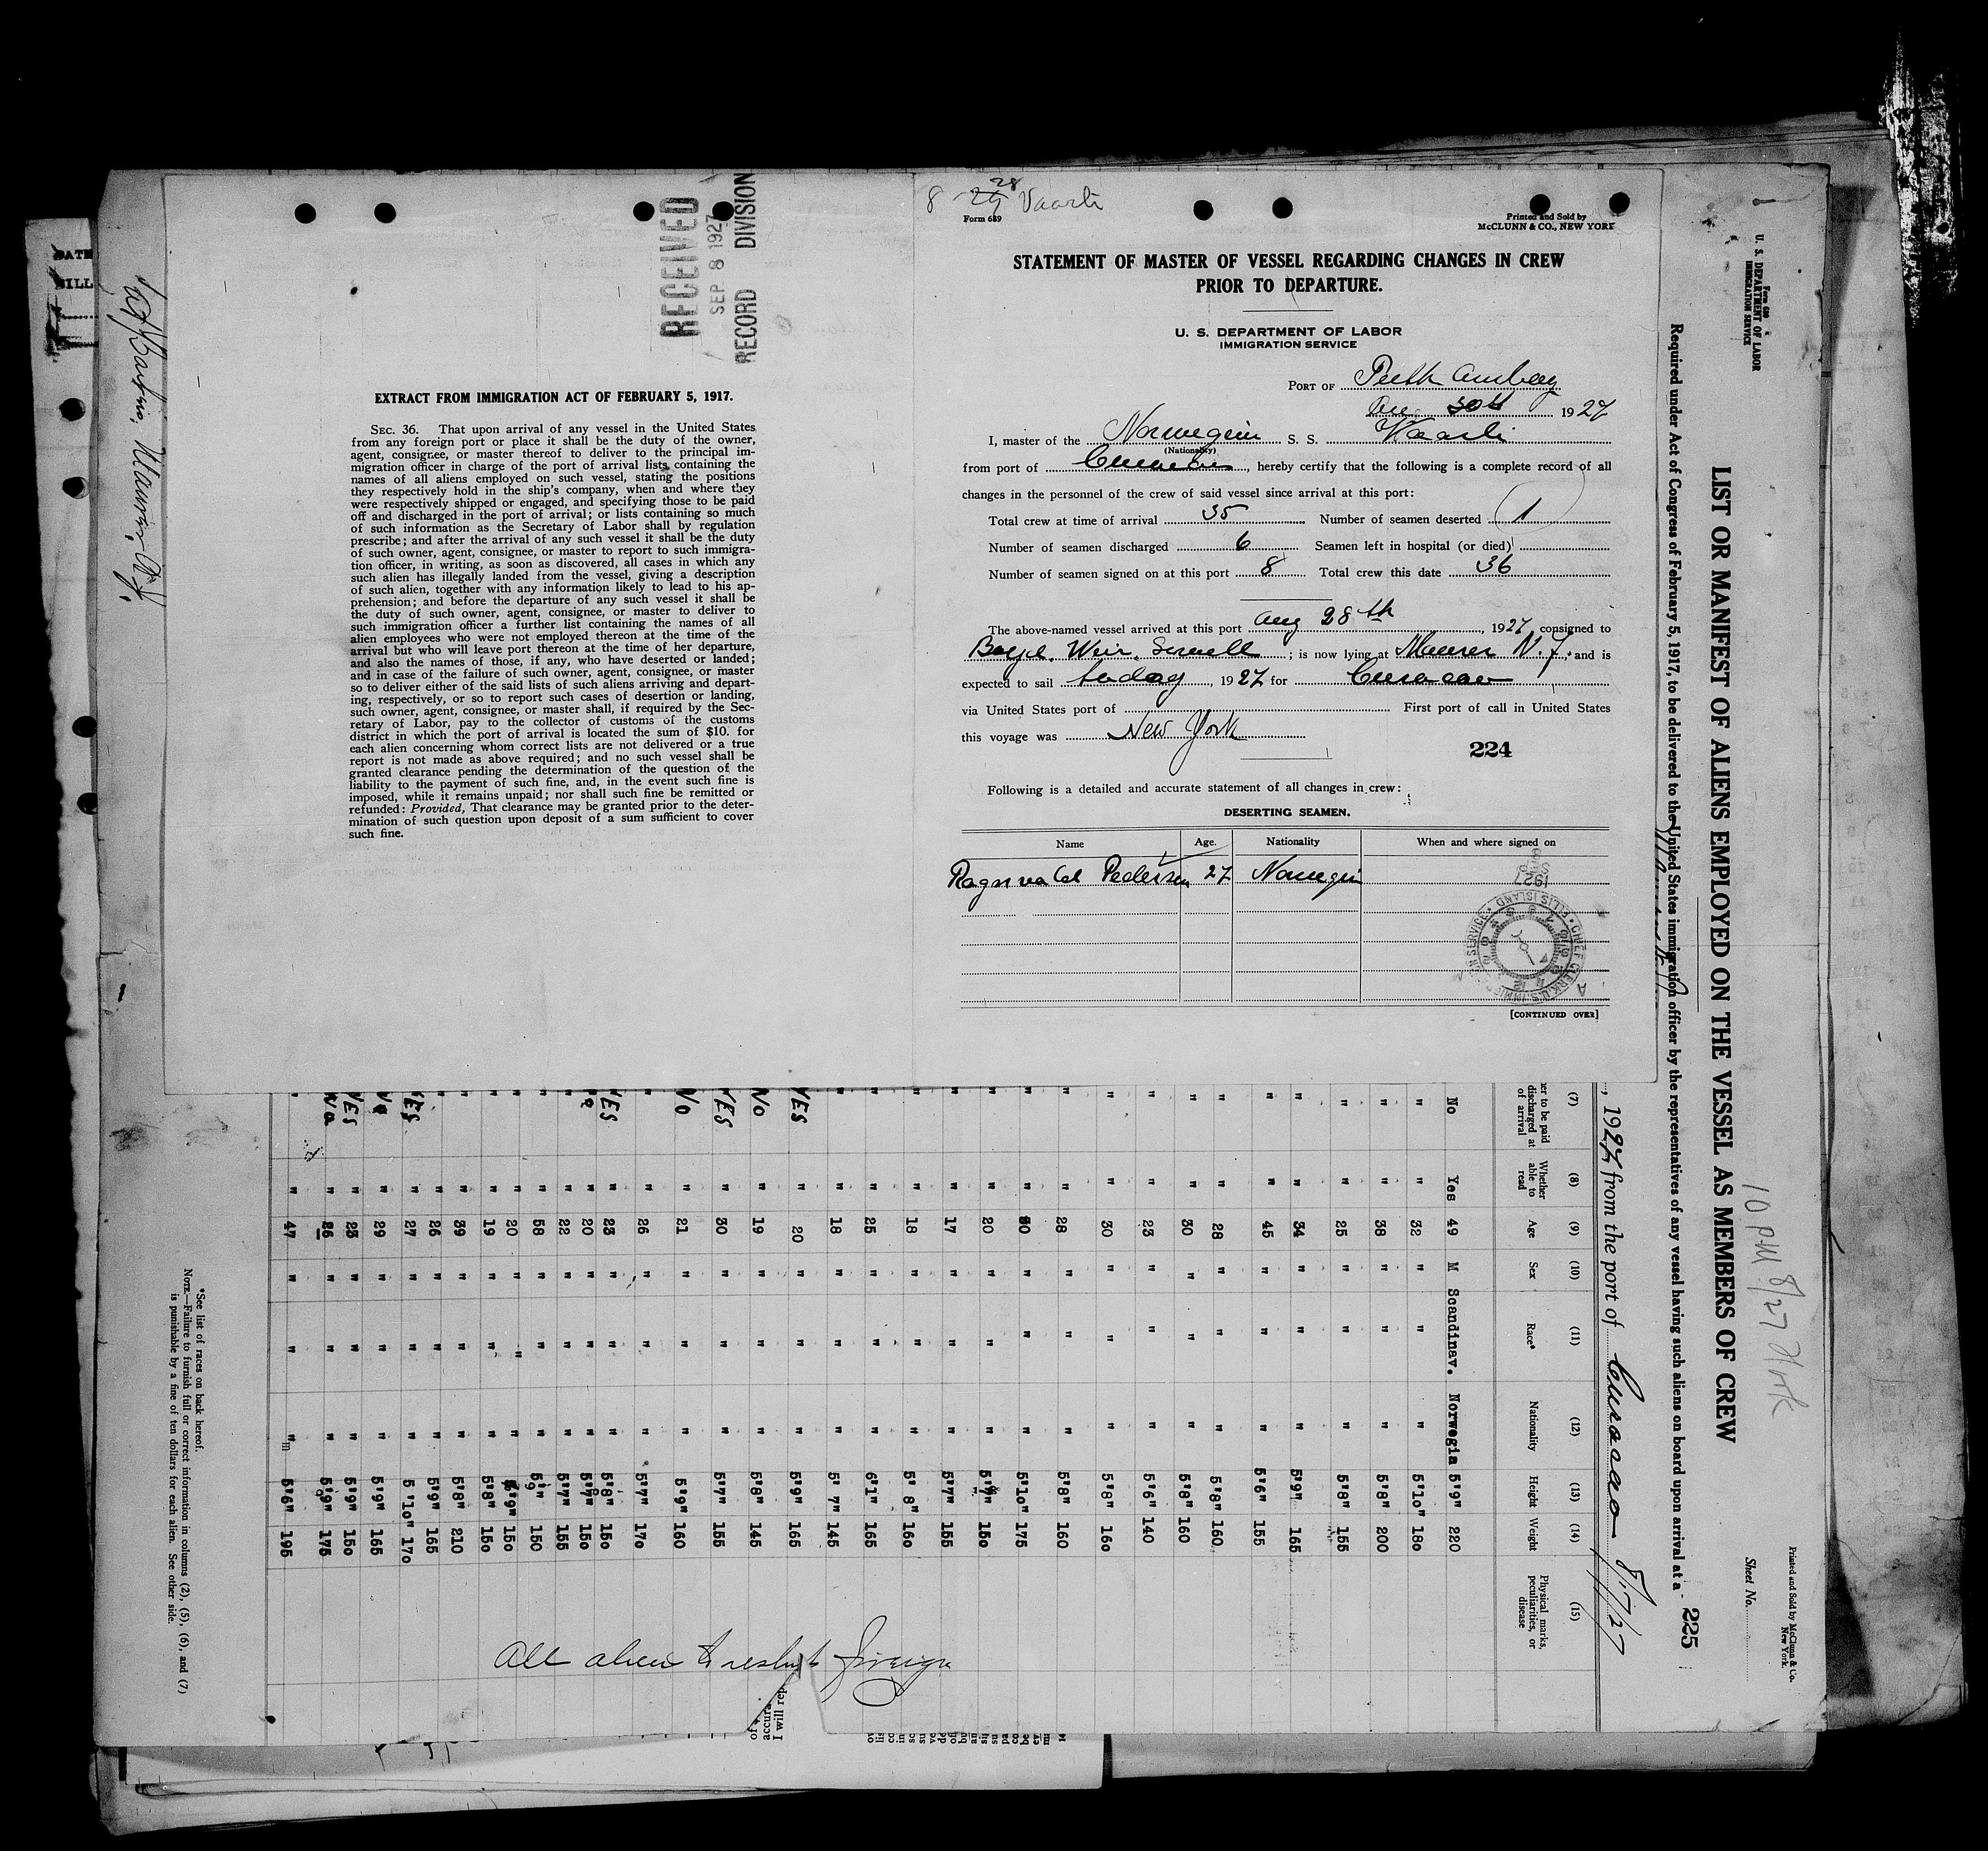 RECEIVED
SEP 8 1927
RECORD DIVISION
EXTRACT FROM IMMIGRATION ACT OF FEBRUARY 5, 1917.
SEC. 36. That upon arrival of any vessel in the United States
from any foreign port or place it shall be the duty of the owner,
agent, consignee, or master thereof to deliver to the principal im-
migration officer in charge of the port of arrival lists containing the
names of all aliens employed on such vessel, stating the positions
they respectively hold in the ship's company, when and where they
were respectively shipped or engaged, and specifying those to be paid
off and discharged in the port of arrival; or lists containing so much
of such information as the Secretary of Labor shall by regulation
prescribe; and after the arrival of any such vessel it shall be the duty
of such owner, agent, consignee, or master to report to such immigra-
tion officer, in writing, as soon as discovered, all cases in which any
such alien has illegally landed from the vessel, giving a description
of such alien, together with any information likely to lead to his ap-
prehension; and before the departure of any such vessel it shall be
the duty of such owner, agent, consignee, or master to deliver to
such immigration officer a further list containing the names of all
alien employees who were not employed thereon at the time of the
arrival but who will leave port thereon at the time of her departure,
and also the names of those, if any, who have deserted or landed;
and in case of the failure of such owner, agent, consignee, or master
so to deliver either of the said lists of such aliens arriving and depart-
ing, respectively, or so to report such cases of desertion or landing,
such owner, agent, consignee, or master shall, if required by the Sec-
retary of Labor, pay to the collector of customs of the customs
district in which the port of arrival is located the sum of $10. for
each alien concerning whom correct lists are not delivered or a true
report is not made as above required; and no such vessel shall be
granted clearance pending the determination of the question of the
liability to the payment of such fine, and, in the event such fine is
imposed, while it remains unpaid; nor shall such fine be remitted or
refunded: Provided, That clearance may be granted prior to the deter-
mination of such question upon deposit of a sum sufficient to cover
such fine.
8 28 Vaarli
Form 689
Printed and Sold by
McCLUNN & CO., NEW YORK
STATEMENT OF MASTER OF VESSEL REGARDING CHANGES IN CREW
PRIOR TO DEPARTURE.
U. S. DEPARTMENT OF LABOR
IMMIGRATION SERVICE
PORT OF Perth Amboy
30th 1927
I, master of the Norwegein S. S. Vaarli
(Nationality)
from port of Curacao, hereby certify that the following is a complete record of all
changes in the personnel of the crew of said vessel since arrival at this port:
Total crew at time of arrival 35 Number of seamen deserted 1
Number of seamen discharged 6 Seamen left in hospital (or died)
Number of seamen signed on at this port 8 Total crew this date 36
The above-named vessel arrived at this port Aug 28th, 1927, consigned to
Weir, ; is now lying at Maurer N. J. and is
expected to sail today, 1927 for Curacao
via United States port of First port of call in United States
this voyage was New York
224
Following is a detailed and accurate statement of all changes in crew:
DESERTING SEAMEN.
Name Age. Nationality When and where signed on
Ragnvald Pedersen 27 Norwegin
1927
CHIEF CLERK U.S. IMMIGRATION SERVICE ELLIS ISLAND
[CONTINUED OVER]
U. S. DEPARTMENT OF LABOR
IMMIGRATION SERVICE
Printed and Sold by McClunn & Co.
New York.
Sheet No.
10 PM 8/27
LIST OR MANIFEST OF ALIENS EMPLOYED ON THE VESSEL AS MEMBERS OF CREW
Required under Act of Congress of February 5, 1917, to be delivered to the United States immigration officer by the representatives of any vessel having such aliens on board upon arrival at a
225
, 1927 from the port of Curacao 8/17/27
(7) (8) (9) (10) (11) (12) (13) (14) (15)
er to be paid discharged at of arrival
Whether able to read
Age
Sex
Race*
Nationality
Height
Weight
Physical marks, peculiarities, or disease
No Yes 49 M Scandinav. Norwegia 5'9" 220
" " 32 " " " 5'10" 180
" " 38 " " " 5'8" 200
" " 25 " " " 5'8" 155
" " 34 " " " 5'9" 165
" " 45 " " " 5'6" 155
" " 28 " " " 5'8" 160
" " 30 " " " 5'8" 160
" " 23 " " " 5'6" 140
" " 30 " " " 5'8" 160
" " 28 " " " 5'8" 160
" " 30 " " " 5'10" 175
" " 20 " " " 150
" " 17 " " " 5'7" 155
" " 18 " " " 5'8" 160
" " 25 " " " 6'1" 165
" " 18 " " " 5'7" 145
YES " 20 " " " 5'9" 165
No " 19 " " " 5'8" 145
YES " 30 " " " 5'7" 155
No " 21 " " " 5'9" 160
" " 26 " " " 5'7" 170
YES " 23 " " " 5'8" 150
" 20 " " " 5'7" 150
" " 22 " " " 5'7" 155
" " 58 " " " 150
" " 20 " " " 5'9" 150
" " 19 " " " 5'8" 150
" " 39 " " " 5'8" 210
" " 26 " " " 5'9" 165
YES " 27 " " " 5'10" 170
No " 29 " " " 5'9" 165
YES " 23 " " " 5'9" 150
No " 26 " " " 5'9" 175
" " 47 " " " 5'6" 195
All foreign
I will rep
accura
of
*See list of races on back hereof.
NOTE.—Failure to furnish full or correct information in columns (2), (5), (6), and (7)
is punishable by a fine of ten dollars for each alien. See other side.